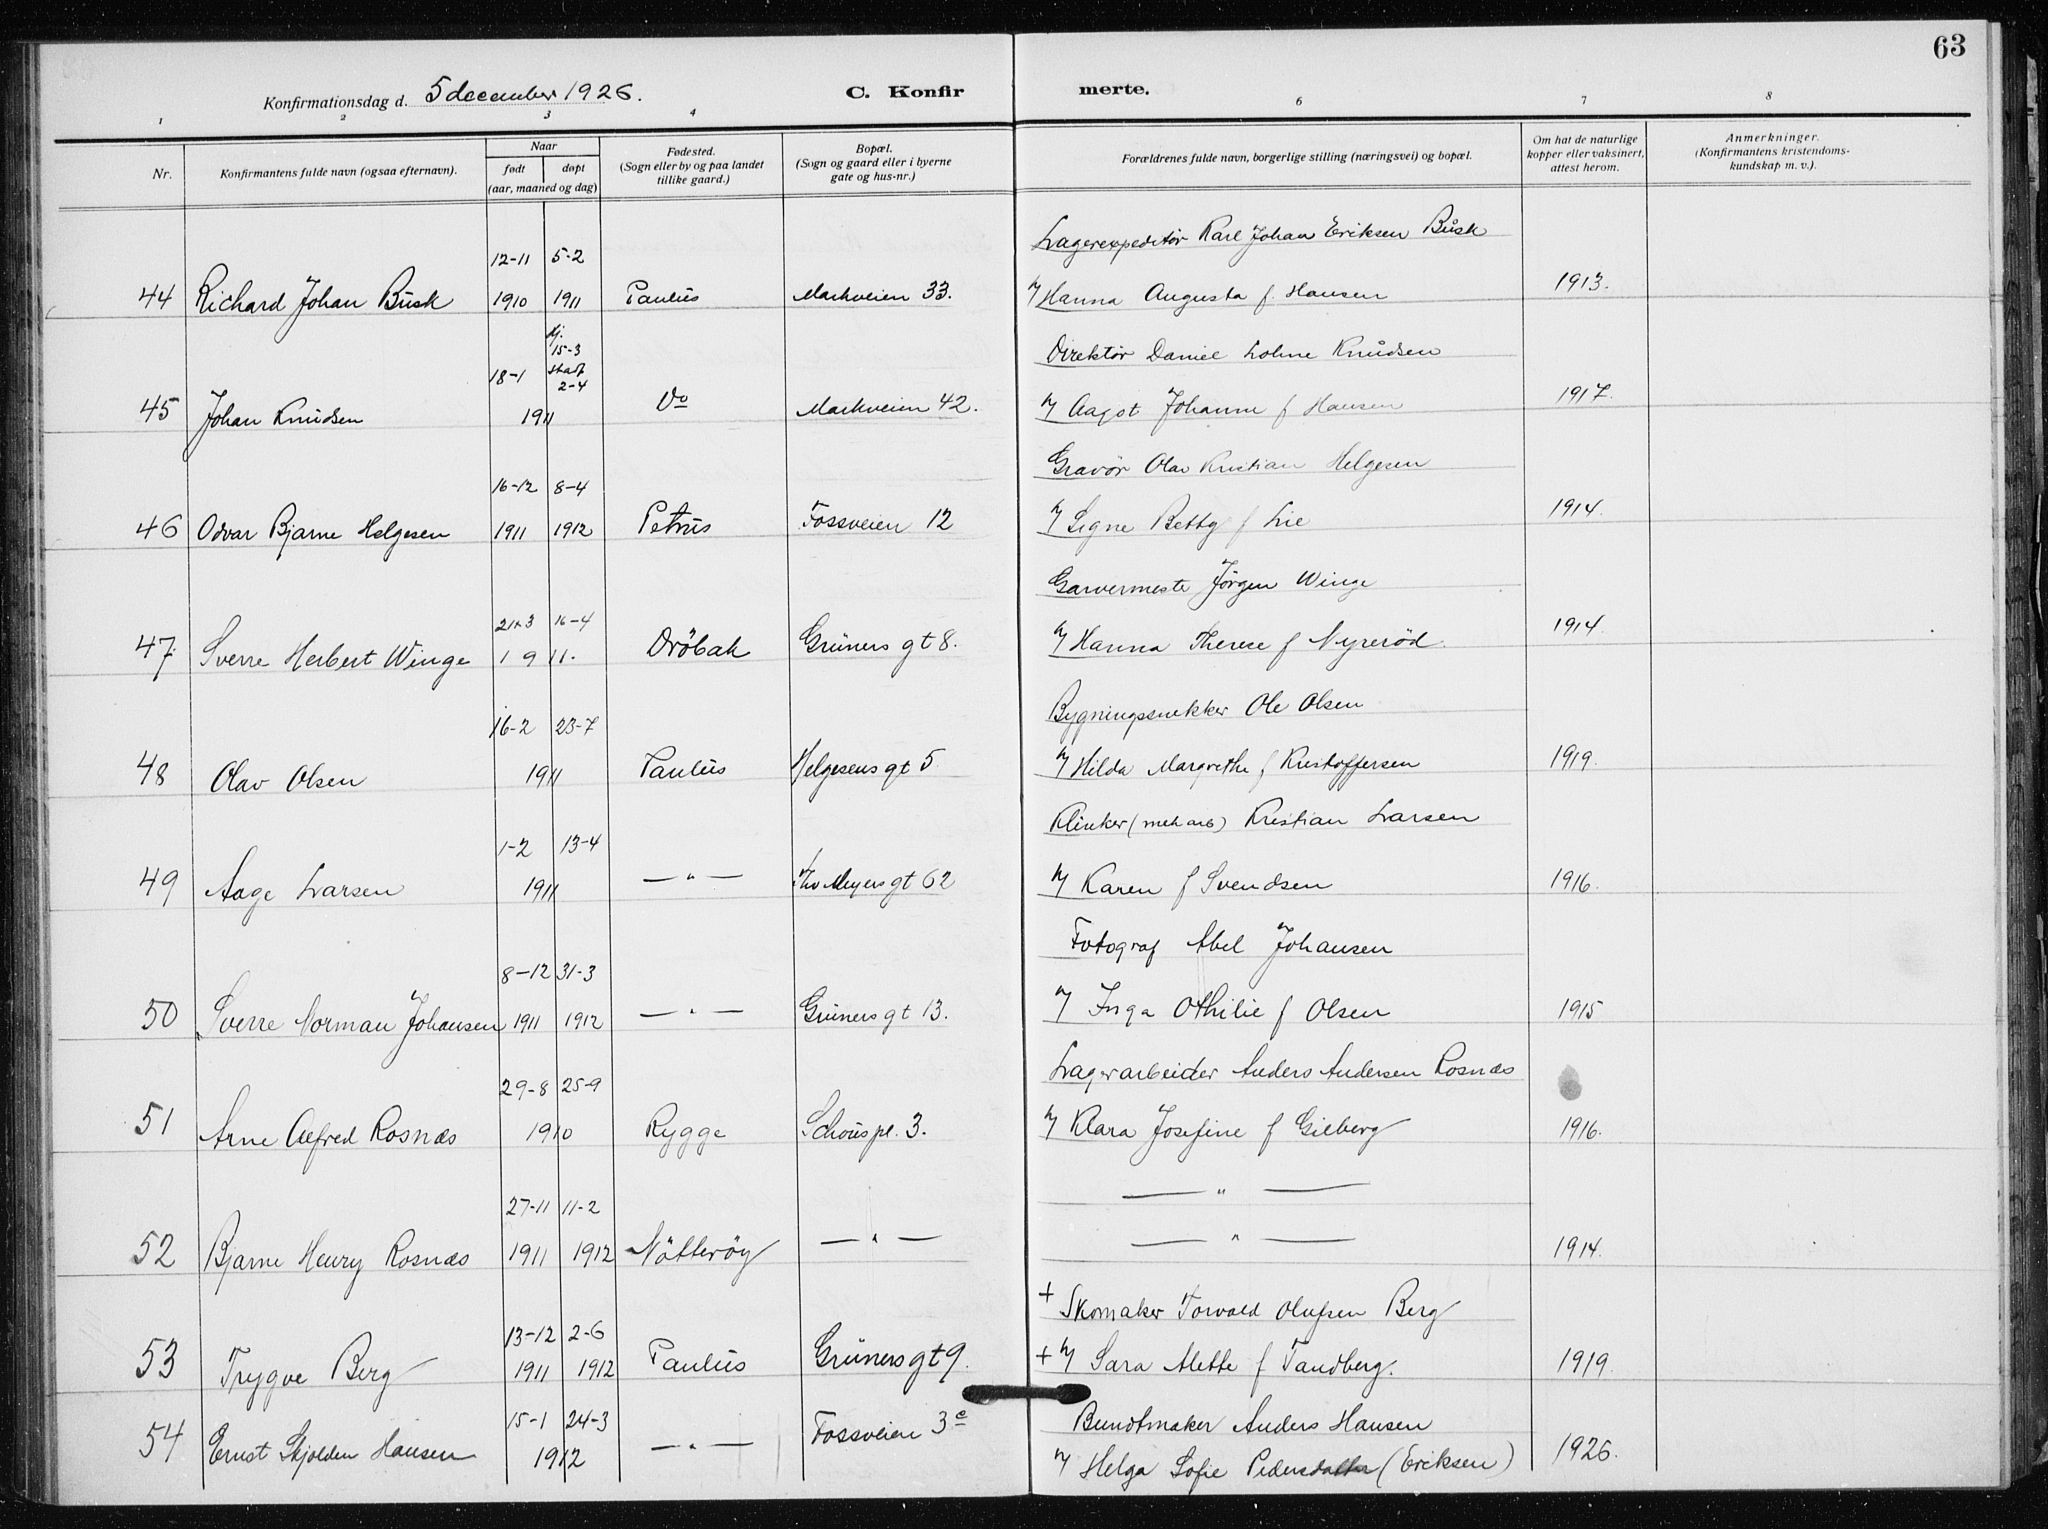 63
Konfirmationsdag d. 5 december 1926. C. Konfirmerte.
1 2 3 4 6 7 8
Nr. Konfirmantens fulde navn (ogsaa efternavn). Naar født døpt (aar, maaned og dag) Fødested. (Sogn eller by og paa landet tillike gaard.) Bopæl. (Sogn og gaard eller i byerne gate og hus-nr.) Forældrenes fulde navn, borgerlige stilling (næringsvei) og bopæl. Om hat de naturlige kopper eller vaksinert, attest herom. Anmerkninger. (Konfirmantens kristendomskundskap m. v.).
12-11 5-2 Lagerexpeditør Karl Johan Eriksen Busk
44 Richard Johan Busk 1910 1911 Paulus Markveien 33. Hanna Augusta f. Hansen 1913.
18-1 hj. 15-3 stadf 2-4 Direktør Daniel Lohne Knudsen
45 Johan Knudsen 1911 Do Markveien 42. Aagot Johanne f Hansen 1917.
16-12 8-4 Gravør Olav Kristian Helgesen
46 Odvar Bjarne Helgesen 1911 1912 Petrus Fossveien 12 Signe Betty f Lie 1914.
21-3 16-4 Garvermester Jørgen Winge
47. Sverre Herbert Winge 1911. Drøbak Grüners gt 8. Hanna Therese f Nyrerød. 1914.
16-2 23-7 Bygningssnekker Ole Olsen
48 Olav Olsen 1911 Paulus Helgesens gt 5 Hilda Margrethe f Kristoffersen 1919.
1-2 13-4 Klinker (mek arb) Kristian Larsen
49 Aage Larsen 1911 — " — Thv Meyers gt 62 Karen f Svendsen 1916.
8-12 31-3 Fotograf Abel Johansen
50 Sverre Norman Johansen 1911 1912 — " — Grüners gt 13. Inga Othilie f Olsen 1915
29-8 25-9 Lagerarbeider Anders Andersen Rosnæs
51 Arne Alfred Rosnæs 1910 Rygge Schous pl. 3. Klara Josefine f Gilberg 1916.
27-11 11-2 — " —
52 Bjarne Henry Rosnæs 1911 1912 Nøtterøy — " — — " — 1914.
13-12 2-6 + Skomaker Torvald Olufsen Berg
53 Trygve Berg 1911 1912 Paulus Grüners gt 9. + Sara Alette f Tandberg. 1919.
15-1 24-3 Bundtmaker Anders Hansen
54 Ernst Skjolden Hansen 1912 — " — Fossveien 3c Helga Sofie Pedersdatter (Eriksen) 1926.